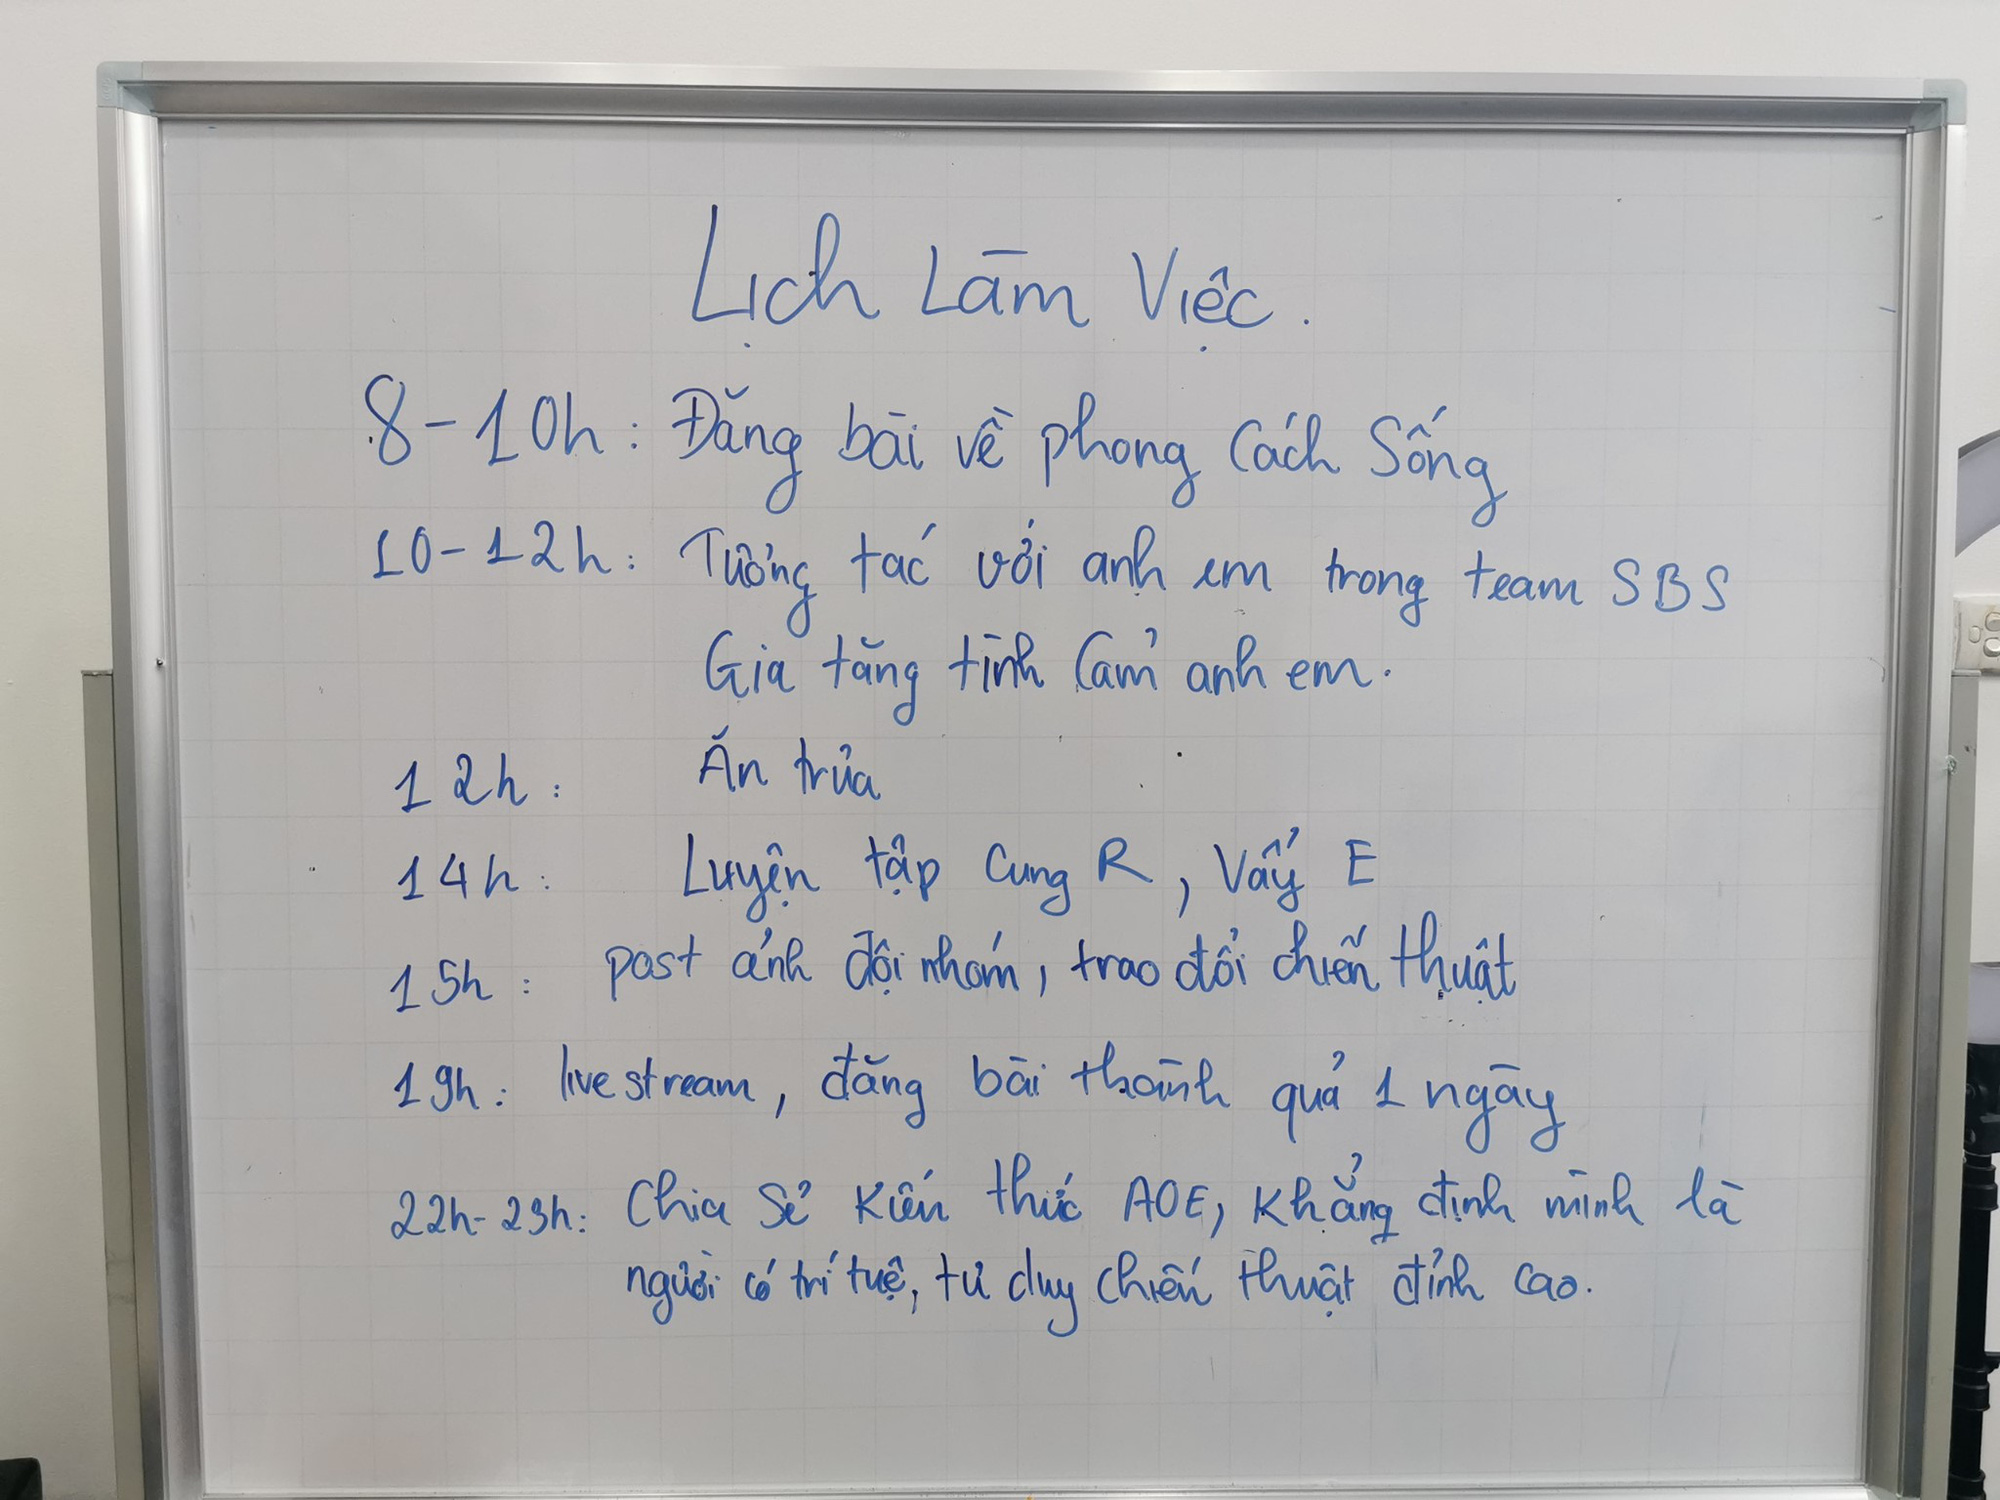 Lịch Làm Việc.
8-10h: Đăng bài về phong Cách Sống
10-12h: Tương tác với anh em trong team SBS
Gia tăng tình Cảm anh em.
12h: Ăn trưa
14h: Luyện tập Cung R, Vẩy E
15h: post ảnh đội nhóm, trao đổi chiến thuật
19h: livestream, đăng bài thành quả 1 ngày
22h-23h: Chia Sẻ Kiến thức AOE, Khẳng định mình là
người có trí tuệ, tư duy chiến thuật đỉnh cao.